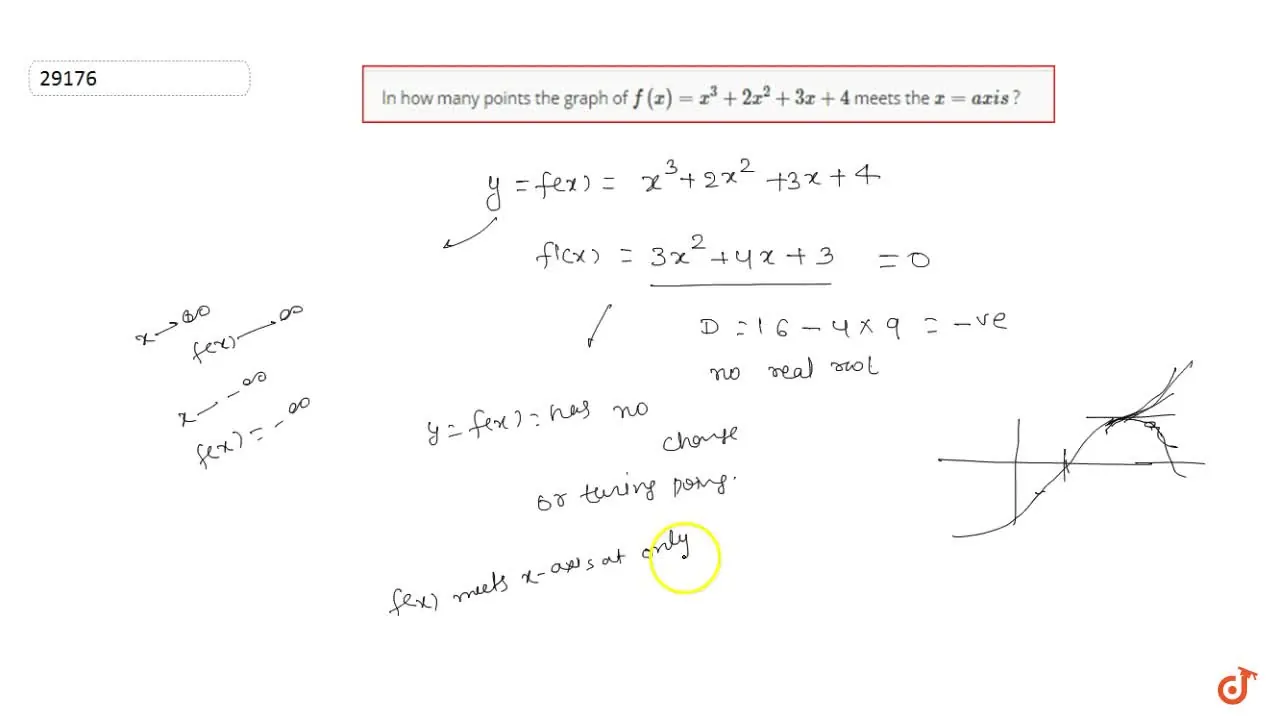 29176
In how many points the graph of f(x) = x³ + 2x² + 3x + 4 meets the x = axis ?
y = f(x) = x³ + 2x² + 3x + 4
f'(x) = 3x² + 4x + 3 = 0
D = 16 - 4 × 9 = -ve
no real root
x → ∞
f(x) → ∞
x → -∞
f(x) = -∞
y = f(x) = has no
change
or turing poing.
f(x) meets x-axis at only